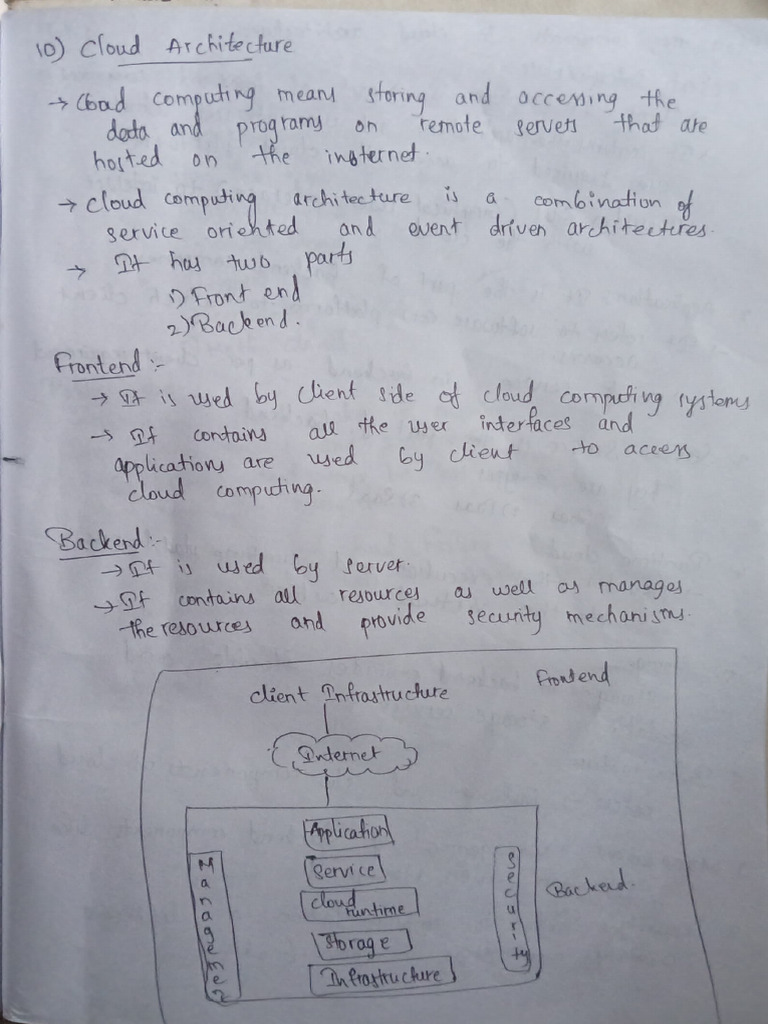 10) Cloud Architecture
→ Cload computing means storing and accessing the
data and programs on remote servers that are
hosted on the insternet.
→ Cloud computing architecture is a combination of
service oriented and event driven architectures.
→ It has two parts
1) Front end
2) Backend.
Frontend :-
→ It is used by client side of cloud computing systems
→ It contains all the user interfaces and
applications are used by client to access
cloud computing.
Backend :-
→ It is used by server.
→ It contains all resources as well as manages
the resources and provide security mechanisms.
Frontend
Client Infrastructure
Internet
Application
Service
cloud
runtime
Storage
Infrastructure
Management
Security
Backend.